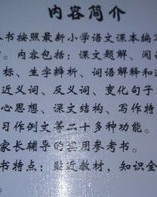 内容简介
书按照最新小学语文课本编
。内容包括：课文题解、阅
标、生字辨析、词语解释和
近义词、反义词、变化句子
心思想、课文结构、写作特
习作例文等二十多种功能。
家长辅导的实用参考书。
书特点：贴近教材，知识全